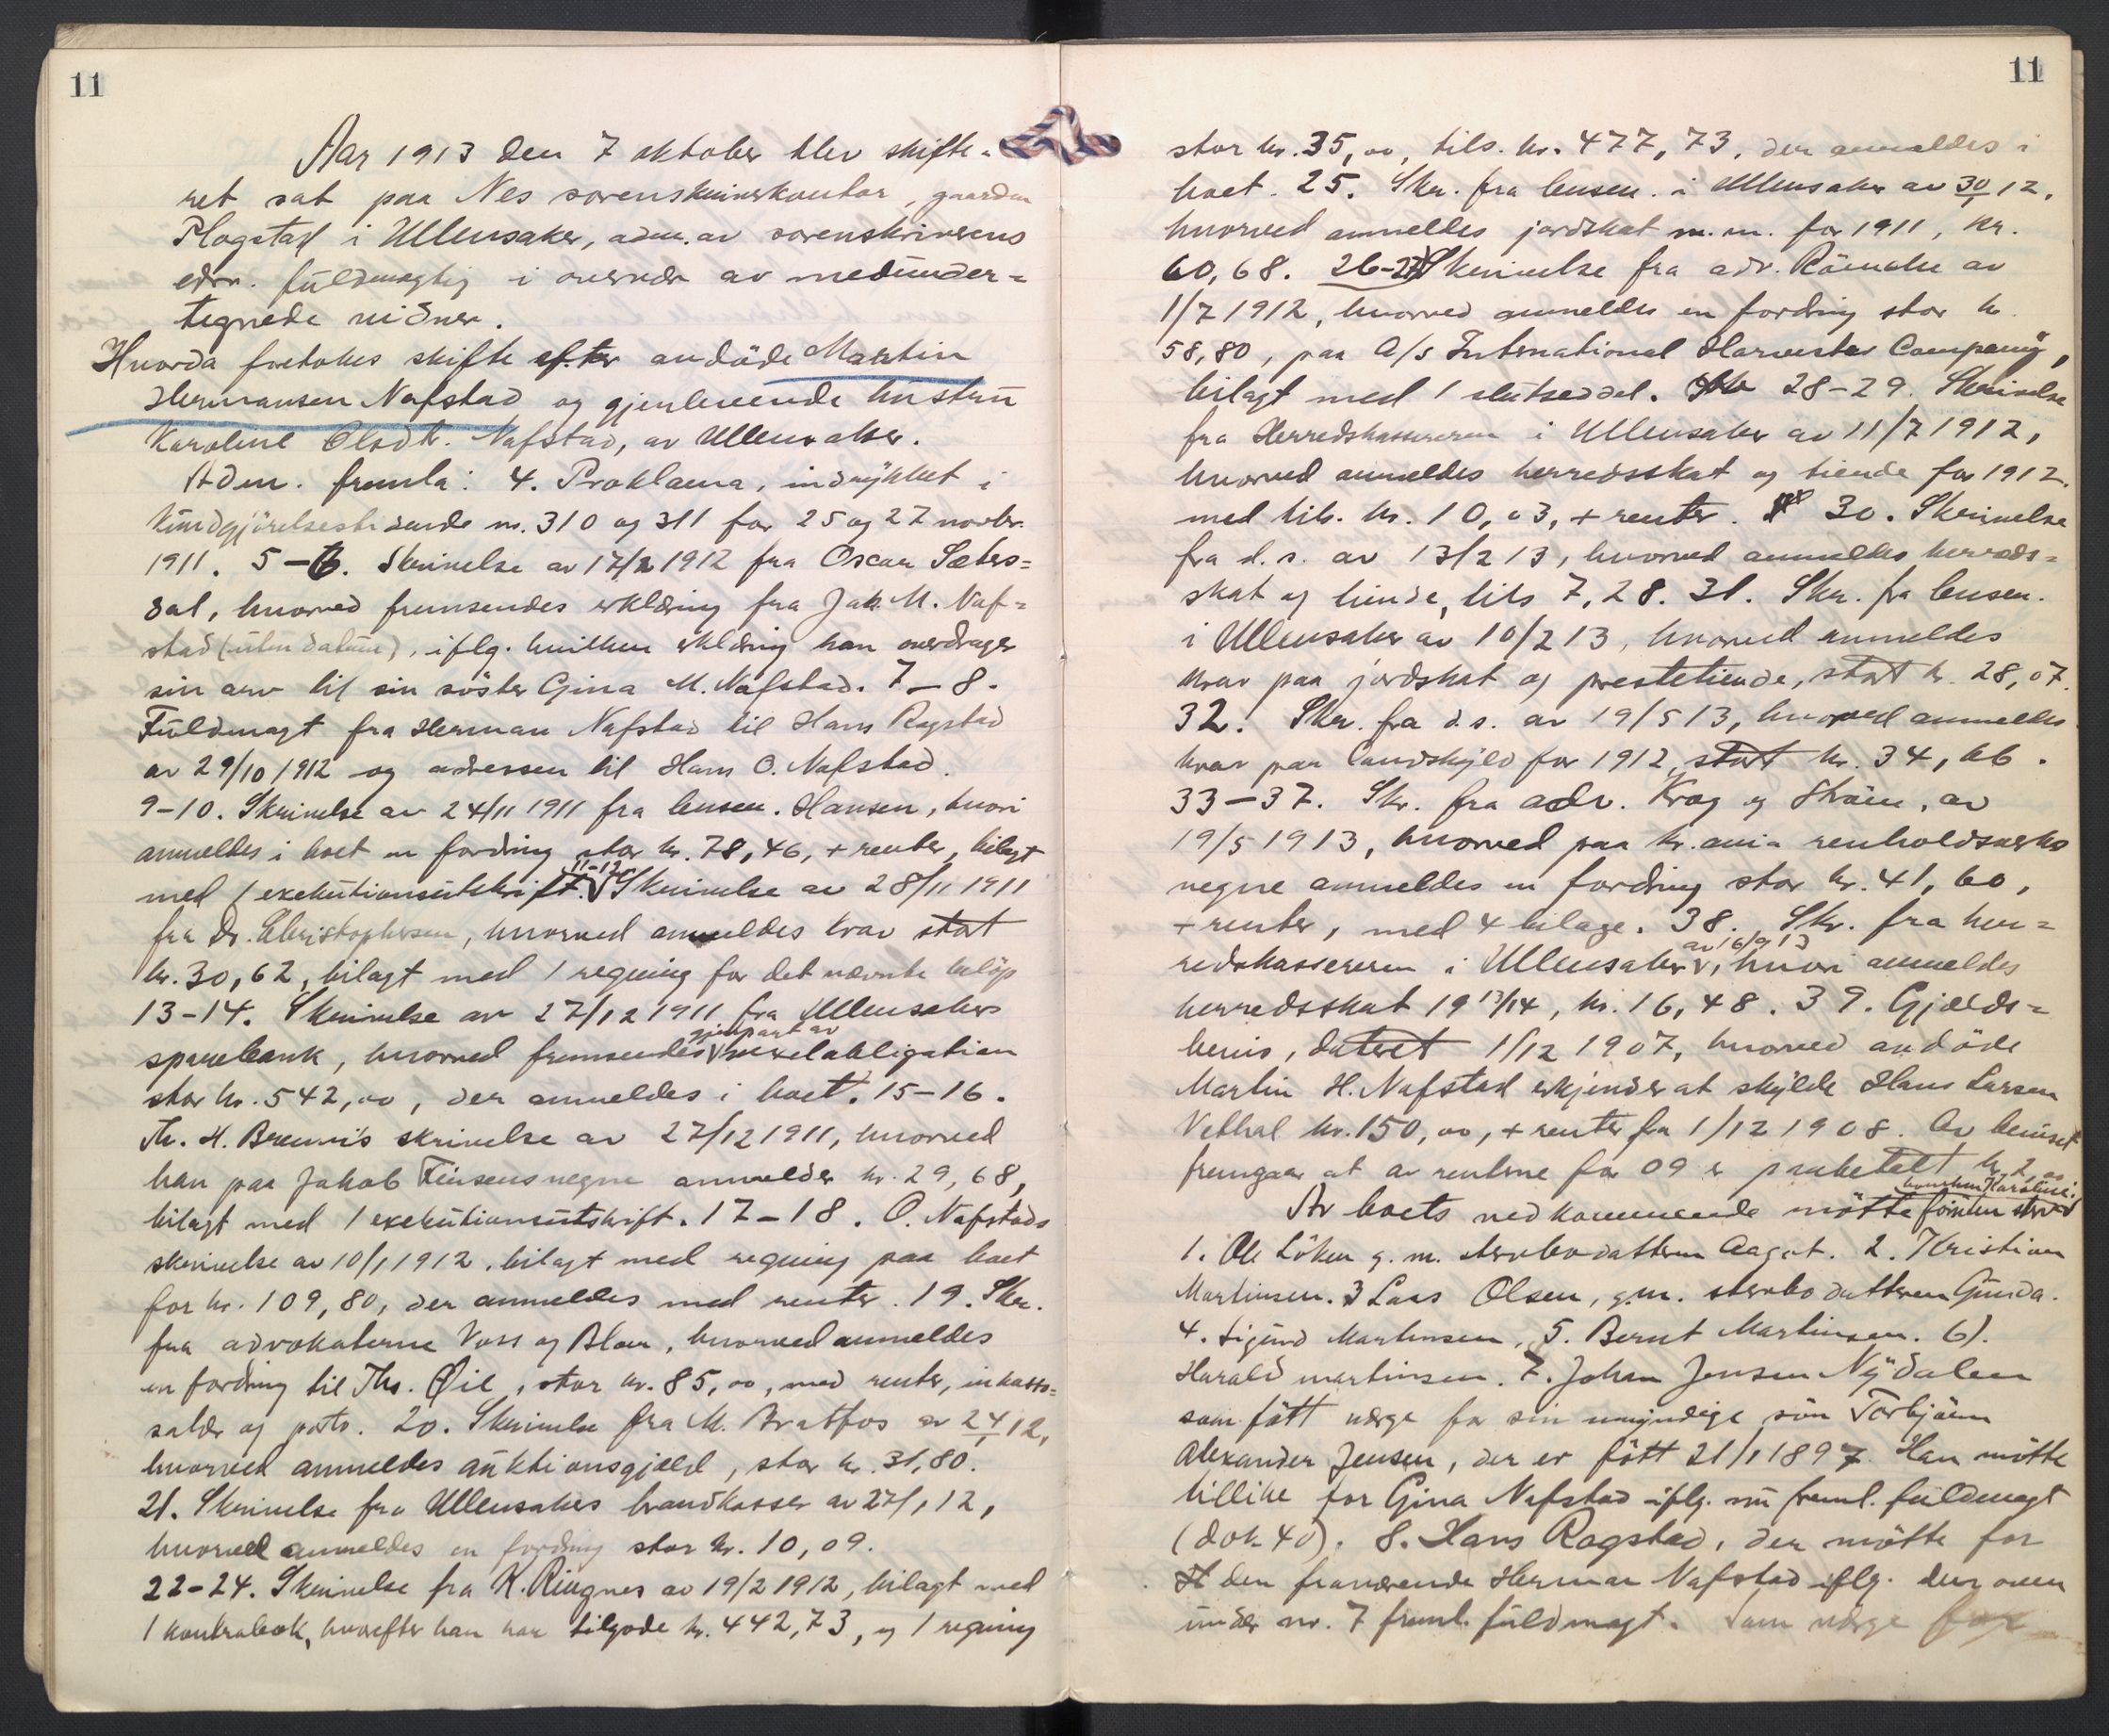 11
Aar 1913 den 7 oktober blev skifte-
ret sat paa Nes sorenskriverkontor, gaarden
Plogstad i Ullensaker, adm. av sorenskriverens
edsv. fuldmægtig i overvær av medunder=
tegnede vidner.
Hvorda foretokes skifte efter avdöde Martin
Hermansen Nafstad og gjenlevende hustru
Karoline Olsdtr. Nafstad, av Ullensaker.
Adm. fremla: 4. Proklama, indrykket i
Kundgjörelsestidende nr. 310 og 311 for 25 og 27 novbr.
1911. 5-6. Skrivelse av 17/2 1912 fra Oscar Sæters=
dal, hvorved fremsendes erklæring fra Jak. M. Naf=
stad (uten datum), iflg. hvilken erklæring han overdrager
sin arv til sin söster Gina M. Nafstad. 7-8.
Fuldmagt fra Herman Nafstad til Hans Ragstad
av 29/10 1912 og adressen til Hans O. Nafstad.
9-10. Skrivelse av 24/11 1911 fra lensm. Hansen, hvori
anmeldes i boet en fordring stor kr. 78,46, + renter, bilagt
med 1 exekutionsutskrift. 11-12. Skrivelse av 28/11 1911
fra Dr. Christophersen, hvorved anmeldes krav stort
kr. 30,62, bilagt med 1 regning for det nævnte belöp
13-14. Skrivelse av 27/12 1911 fra Ullensakers
sparebank, hvorved fremsendes gjenpart av vexelobligation
stor kr. 542,00, der anmeldes i boet. 15-16.
Th. H. skrivelse av 27/12 1911, hvorved
han paa Jakob vegne anmelder kr. 29,68,
bilagt med 1 exekutionsutskrift. 17-18. O. Nafstads
skrivelse av 10/1 1912, bilagt med regning paa boet
for kr. 109,80, der anmeldes med renter. 19. Skr.
fra advokaterne Voss og, hvorved anmeldes
en fordring til Ths. Øie, stor kr. 85,00, med renter, inkasso=
salær og porto. 20. Skrivelse fra M. Bratfos av 24/1 12,
hvorved anmeldes auktionsgjæld, stor kr. 31,80.
21. Skrivelse fra Ullensakers brandkasser av 27/1 12,
hvorved anmeldes en fordring stor kr. 10,09.
22-24. Skrivelse fra K. Ringnes av 19/2 1912, bilagt med
1 kontrabok, hvorefter han har tilgode kr. 442,73, og 1 regning
11
stor kr. 35,00, tils. kr. 477,73, der anmeldes i
boet. 25. Skr. fra lensm. i Ullensaker av 30/1 12,
hvorved anmeldes jordskat m.m. for 1911, kr.
60,68. 26-27) Skrivelse fra adv. av
1/7 1912, hvorved anmeldes en fordring stor kr.
58,80, paa A/S International Harvester Company,
bilagt med 1 slutseddel. 28-29. Skrivelse
fra Herredskassereren i Ullensaker av 11/7 1912,
hvorved anmeldes herredsskat og tiende for 1912.
med tils. kr. 10,03, + renter. 30. Skrivelse
fra d.s. av 13/2 13, hvorved anmeldes herreds=
skat og tiende, tils 7,28. 31. Skr. fra lensm.
i Ullensaker av 10/2 13, hvorved anmeldes
krav paa jordskat og prestetiende, stort kr. 28,07.
32. Skr. fra d.s. av 19/5 13, hvorved anmeldes
krav paa landskyld for 1912, stort kr. 34,66.
33-37. Skr. fra adv. Krog og Ström, av
19/5 1913, hvorved paa kr.ania renholdsverks
vegne anmeldes en fordring stor kr. 41,60,
+ renter, med 4 bilage. 38. Skr. fra her=
redskassereren i Ullensaker av 16/9 13, hvori anmeldes
herredsskat 1913/14, kr. 16,48. 39. Gjælds=
bevis, datert 1/12 1907, hvorved avdöde
Martin H. Nafstad erkjender at skylde Hans Larsen
Vethal kr. 150,00, + renter fra 1/12 1908. Av beviset
fremgaar at av renterne for 09 er paabetalt kr. 2,00
Av boets vedkommende mötte foruten enken Karoline:
1. Ole Löken g.m. stervbodatteren Aagot. 2. Kristian
Martinsen. 3 Lars Olsen, g.m. stervbodatteren Gunda.
4. Sigurd Martinsen, 5. Bernt Martinsen. 6).
Harald martinsen. 7. Johan Jensen Nydalen
som født værge for sin umyndige sön Torbjörn
Alexander Jensen, der er født 21/1 1897. Han mötte
tillike for Gina Nafstad iflg. nu freml. fuldmagt
(dok 40). 8. Hans Ragstad, der mötte for
den fraværende Herman Nafstad iflg. den oven
under nr. 7 freml. fuldmagt. Som værge for